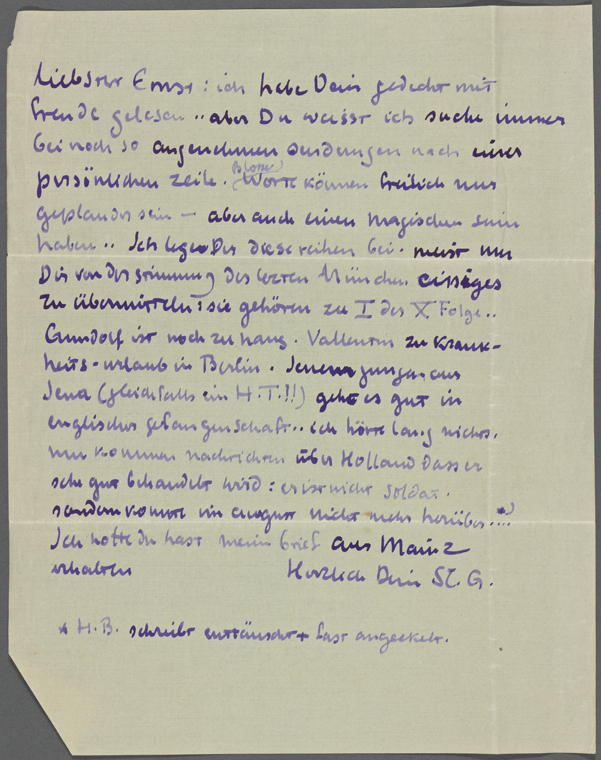 liebster Ernst: ich habe Dein gedicht mit
freude gelesen .. aber Du weisst ich suche immer
bei noch so angenehmen sendungen nach einer
persönlichen zeile. Blosse
Worte können freilich nur
geplauder sein — aber auch einen magischen sinn
haben .. Ich lege Dir diese reihen bei. meist um
Dir von der stimmung des lezten München einiges
zu übermitteln: sie gehören zu I der X Folge ..
Gundolf ist noch zu haus. Vallentin zu krank-
heits-urlaub in Berlin. Jenem jungen aus
Jena (gleichfalls ein H.T.!!) geht es gut in
englischer gefangenschaft .. ich hörte lang nichts.
nun kommen nachrichten über Holland dass er
sehr gut behandelt wird: er ist nicht soldat.
sondern konnte im august nicht mehr herüber ....*)
Ich hoffe du hast meinen brief aus Mainz
erhalten
Herzlich Dein St. G.
* H.B. schreibt enttäuscht + fast angeekelt.